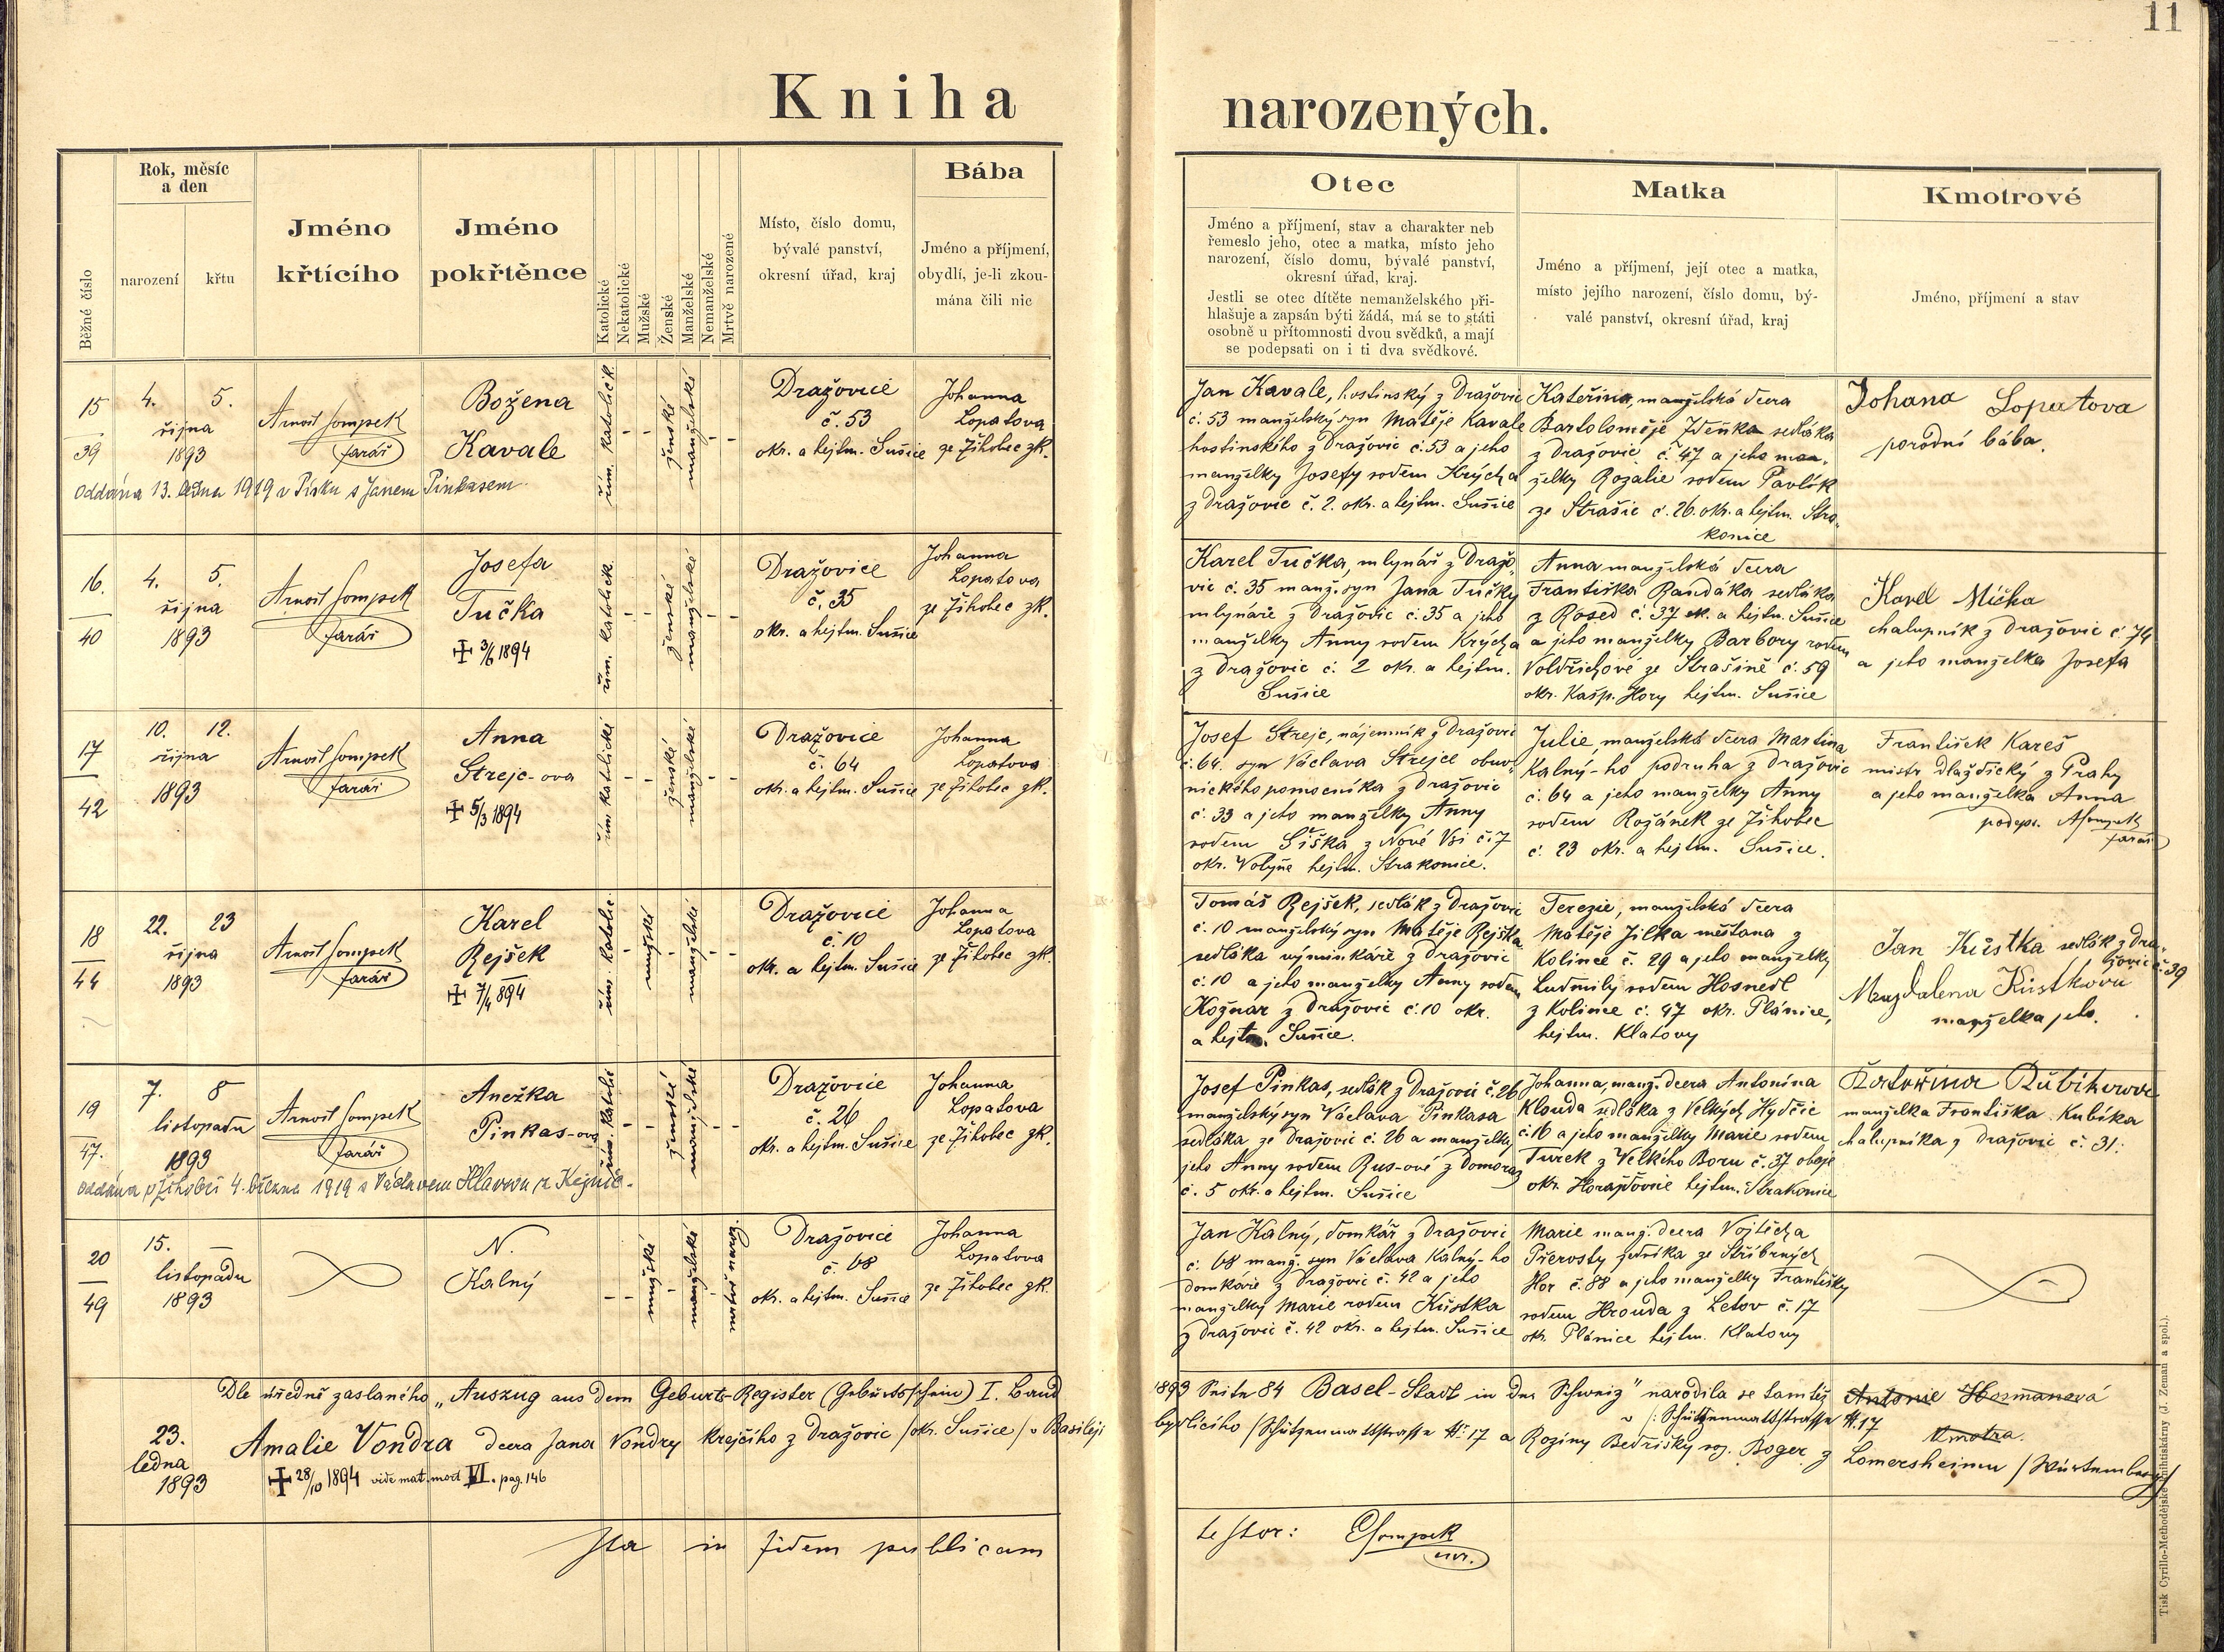 11
Kniha narozených.
Běžné číslo
Rok, měsíc
a den
narození
křtu
Jméno
křtícího
Jméno
pokřtěnce
Katolické
Nekatolické
Mužské
Ženské
Manželské
Nemanželské
Mrtvě narozené
Místo, číslo domu,
bývalé panství,
okresní úřad, kraj
Bába
Jméno a příjmení,
obydlí, je-li zkou-
mána čili nic
Otec
Jméno a příjmení, stav a charakter neb
řemeslo jeho, otec a matka, místo jeho
narození, číslo domu, bývalé panství,
okresní úřad, kraj.
Jestli se otec dítěte nemanželského při-
hlašuje a zapsán býti žádá, má se to státi
osobně u přítomnosti dvou svědků, a mají
se podepsati on i ti dva svědkové.
Matka
Jméno a příjmení, její otec a matka,
místo jejího narození, číslo domu, bý-
valé panství, okresní úřad, kraj
Kmotrové
Jméno, příjmení a stav
15
39
4. 5.
října
1893
Arnošt Sompek
farář
Božena
Kavale
řím. katolick.
ženské
manželské
Dražovice
č. 53
okr. a hejtm. Sušice
Johanna
Lopatova
ze Žihobec zk.
Jan Kavale, hostinský z Dražovic
č. 53 manželský syn Matěje Kavale
hostinského z Dražovic č. 53 a jeho
manželky Josefy rodem Krýcha
z Dražovic č. 2. okr. a hejtm. Sušice
Kateřina, manželská dcera
Bartoloměje Zdeňka sedláka
z Dražovic č. 47 a jeho man-
želky Rozalie rodem Pavlík
ze Strašic č. 26. okr. a hejtm. Stra-
konice
Johana Lopatova
porodní bába.
Oddána 13. ledna 1919 v Písku s Janem Pinkasem
16.
40
4. 5.
října
1893
Arnošt Sompek
farář
Josefa
Tučka
✝ 3/6 1894
řím. katolick.
ženské
manželské
Dražovice
č. 35
okr. a hejtm. Sušice
Johanna
Lopatova
ze Žihobec zk.
Karel Tučka, mlynář z Dražo-
vic č. 35 manž. syn Jana Tučky
mlynáře z Dražovic č. 35 a jeho
manželky Anny rodem Krýcha
z Dražovic č. 2 okr. a hejtm.
Sušice
Anna manželská dcera
Františka Randáka sedláka
z Rosed č. 37 ok. a hejtm. Sušice
a jeho manželky Barbory rodem
Voldřichové ze Strašíně č. 59
okr. Kašp. Hory hejtm. Sušice
Karel Mička
chalupník z Dražovic č. 74
a jeho manželka Josefa
17
42
10. 12.
října
1893
Arnošt Sompek
farář
Anna
Strejc-ova
✝ 5/3 1894
řím. katolické
ženské
manželské
Dražovice
č. 64
okr. a hejtm. Sušice
Johanna
Lopatova
ze Žihobec zk.
Josef Strejc, nájemník z Dražovic
č. 64. syn Václava Strejce obuv-
nického pomocníka z Dražovic
č. 33 a jeho manželky Anny
rodem Šiška z Nové Vsi č. 7
okr. Volyňe hejtm. Strakonice.
Julie, manželská dcera Martina
Kalný-ho podruha z Dražovic
č. 64 a jeho manželky Anny
rodem Rožánek ze Žihobec
č. 23 okr. a hejtm. Sušice.
František Kareš
mistr dlaždický z Prahy
a jeho manželka Anna
podeps. ASompek
farář
18
44
22. 23
října
1893
Arnošt Sompek
farář
Karel
Rejšek
✝ 7/4 894
řím. katolic.
mužské
manželské
Dražovice
č. 10
okr. a hejtm. Sušice
Johanna
Lopatova
ze Žihobec zk.
Tomáš Rejšek, sedlák z Dražovic
č. 10 manželský syn Matěje Rejška
sedláka výminkáře z Dražovic
č. 10 a jeho manželky Anny rodem
Kožnar z Dražovic č. 10 okr.
a hejtm. Sušice.
Terezie, manželská dcera
Matěje Jílka měšťana z
Kolince č. 29 a jeho manželky
Ludmily rodem Hosnedl
z Kolince č. 47 okr. Plánice,
hejtm. Klatovy
Jan Kůstka sedlák z Dra-
žovic č. 39
Magdalena Kůstkova
manželka jeho.
19
47.
7. 8
listopadu
1893
Arnošt Sompek
farář
Anežka
Pinkas-ova
řím. katolic
ženské
manželské
Dražovice
č. 26
okr. a hejtm. Sušice
Johanna
Lopatova
ze Žihobec zk.
Josef Pinkas, sedlák z Dražovic č. 26
manželský syn Václava Pinkasa
sedláka ze Dražovic č. 26 a manželky
jeho Anny rodem Rus-ové z Domoraz
č. 5 okr. a hejtm. Sušice
Johanna, manž. dcera Antonína
Klouda sedláka z Velkých Hydčic
č. 16 a jeho manželky Marie rodem
Turek z Velkého Boru č. 37 oboje
okr. Horažďovice hejtm. Strakonice
Kateřina Kubíkova
manželka Františka Kubíka
chalupníka z Dražovic č. 31.
Oddána v Žihobci 4. března 1919 s Václavem Hlavsou z Kejnic.
20
49
15. —
listopadu
1893
N.
Kalný
mužské
manželské
mrtvě narozený
Dražovice
č. 68
okr. a hejtm. Sušice
Johanna
Lopatova
ze Žihobec zk.
Jan Kalný, domkář z Dražovic
č. 68 manž. syn Václava Kalný-ho
domkáře z Dražovic č. 42 a jeho
manželky Marie rodem Kůstka
z Dražovic č. 42 okr. a hejtm. Sušice
Marie manž. dcera Vojtěcha
Přerosty zedníka ze Stříbrných
Hor č. 88 a jeho manželky Františky
rodem Hrouda z Letov č. 17
okr. Plánice hejtm. Klatovy
Dle úředně zaslaného „Auszug aus dem Geburts-Register (Geburtsschein) I. Band
1893 Seite 84 Basel-Stadt in der Schweiz" narodila se tamtéž
v /: Schützenmattstrasse № 17
23.
ledna
1893
Amalie Vondra dcera Jana Vondry krejčího z Dražovic /okr. Sušice/ v Basileji
bydlícího /Schützenmattstrasse №: 17 a Roziny Bedřišky roz. Boger z Lomersheimu /Würtemberg/
✝ 28/10 1894 vide mat. mort VI. pag. 146
Antonie Hosmanová
Kmotra.
Ita in fidem publicam
testor: ESompek
Tisk Cyrillo-Methodějské knihtiskárny (J. Zeman a spol.).